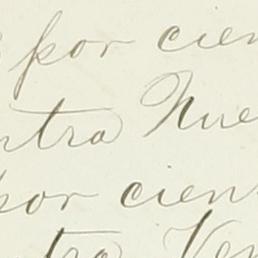 por cien
ntra Nue
por cien
tra Ven